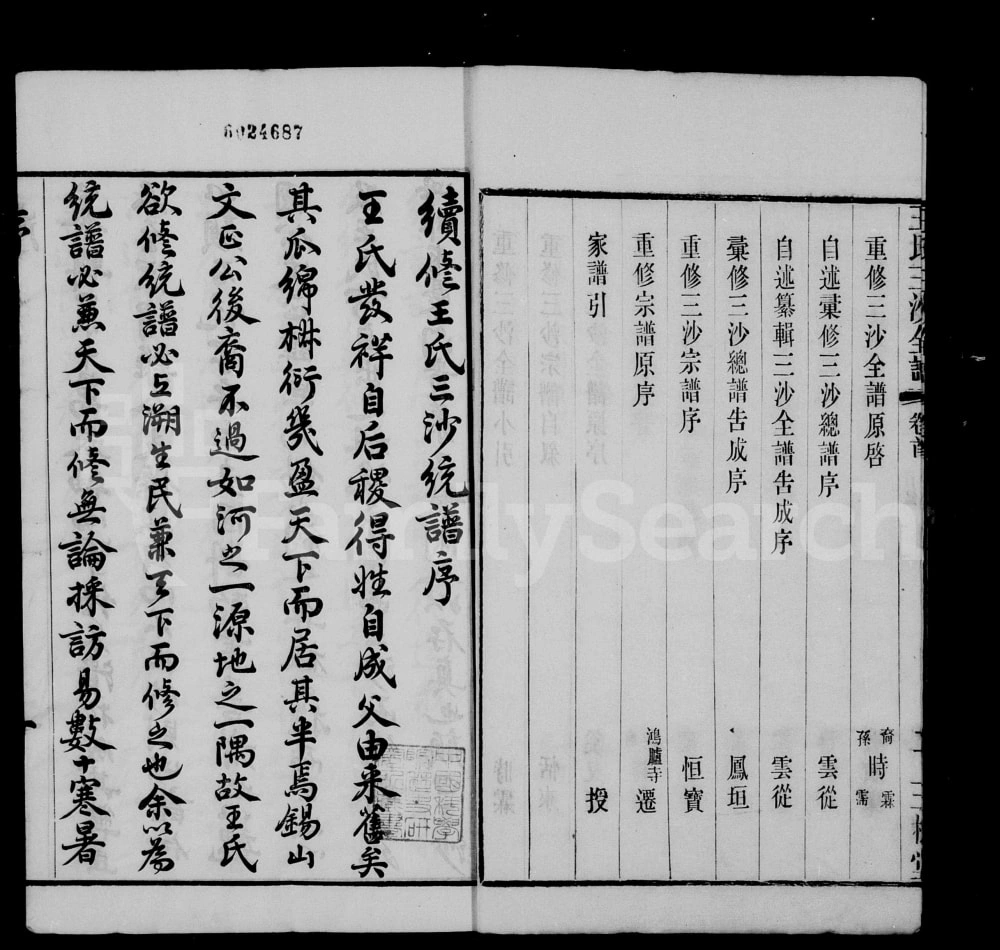 重修三沙全譜原啓 裔孫時霖霈
自述彙修三沙總譜序 雲從
自述纂輯三沙全譜告成序 雲從
彙修三沙總譜告成序 鳳垣
重修三沙宗譜序 恒寶
重修宗譜原序 鴻臚寺遷
家譜引 授
6024687
續修王氏三沙統譜序
王氏發祥自后稷得姓自成父由来舊矣
其瓜綿椒衍幾盈天下而居其半焉錫山
文正公後裔不過如河之一源地之一隅故王氏
欲修統譜必上溯生民兼天下而修之也余以為
統譜必兼天下而修無論採訪易數十寒暑
FamilySearch